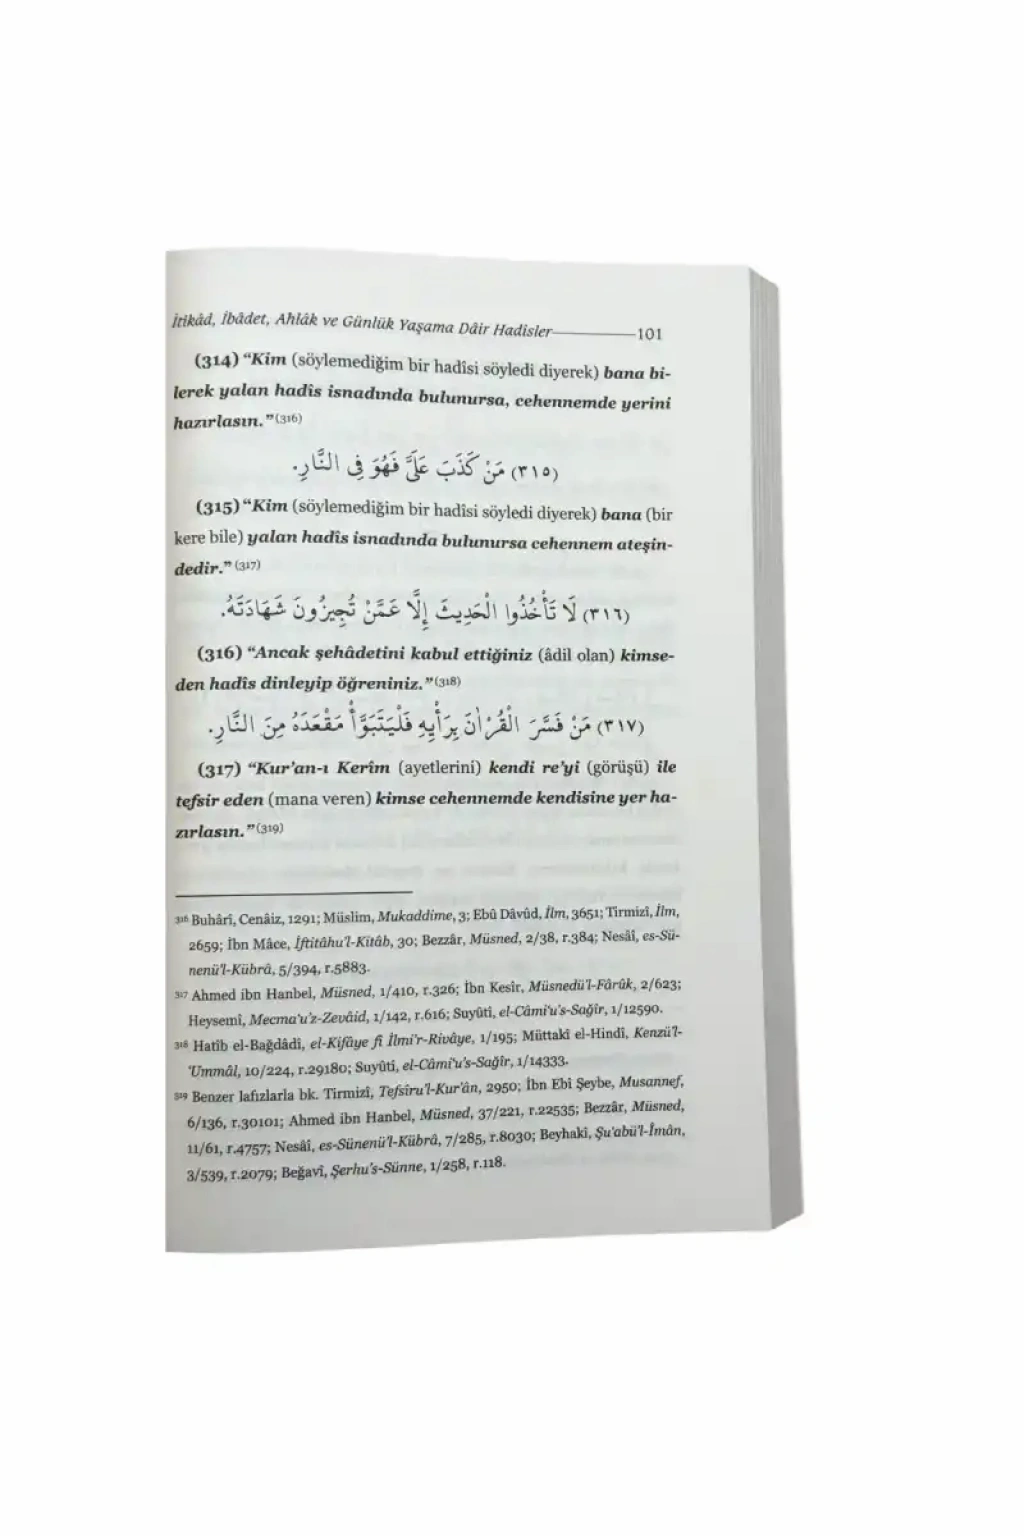 İtikâd, İbâdet, Ahlâk ve Günlük Yaşama Dâir Hadisler 101
(314) “Kim (söylemediğim bir hadîsi söyledi diyerek) bana bi-
lerek yalan hadîs isnadında bulunursa, cehennemde yerini
hazırlasın.”(316)
(٣١٥) مَنْ كَذَبَ عَلَيَّ فَهُوَ فِي النَّارِ.
(315) “Kim (söylemediğim bir hadîsi söyledi diyerek) bana (bir
kere bile) yalan hadîs isnadında bulunursa cehennem ateşin-
dedir.” (317)
(٣١٦) لَا تَأْخُذُوا الْحَدِيثَ إِلَّا عَمَّنْ تُجِيزُونَ شَهَادَتَهُ.
(316) “Ancak şehâdetini kabul ettiğiniz (âdil olan) kimse-
den hadîs dinleyip öğreniniz.”(318)
(٣١٧) مَنْ فَسَّرَ الْقُرْاٰنَ بِرَأْيِهِ فَلْيَتَبَوَّأْ مَقْعَدَهُ مِنَ النَّارِ.
(317) “Kur’an-ı Kerîm (ayetlerini) kendi re’yi (görüşü) ile
tefsir eden (mana veren) kimse cehennemde kendisine yer ha-
zırlasın.”(319)
316 Buhârî, Cenâiz, 1291; Müslim, Mukaddime, 3; Ebû Dâvûd, İlm, 3651; Tirmizî, İlm,
2659; İbn Mâce, İftitâhu’l-Kitâb, 30; Bezzâr, Müsned, 2/38, r.384; Nesâî, es-Sü-
nenü’l-Kübrâ, 5/394, r.5883.
317 Ahmed ibn Hanbel, Müsned, 1/410, r.326; İbn Kesîr, Müsnedü’l-Fârûk, 2/623;
Heysemî, Mecma’u’z-Zevâid, 1/142, r.616; Suyûtî, el-Câmi’u’s-Sağîr, 1/12590.
318 Hatîb el-Bağdâdî, el-Kifâye fî İlmi’r-Rivâye, 1/195; Müttakî el-Hindî, Kenzü’l-
‘Ummâl, 10/224, r.29180; Suyûtî, el-Câmi’u’s-Sağîr, 1/14333.
319 Benzer lafızlarla bk. Tirmizî, Tefsîru’l-Kur’ân, 2950; İbn Ebî Şeybe, Musannef,
6/136, r.30101; Ahmed ibn Hanbel, Müsned, 37/221, r.22535; Bezzâr, Müsned,
11/61, r.4757; Nesâî, es-Sünenü’l-Kübrâ, 7/285, r.8030; Beyhakî, Şu‘abü’l-Îmân,
3/539, r.2079; Beğavî, Şerhu’s-Sünne, 1/258, r.118.